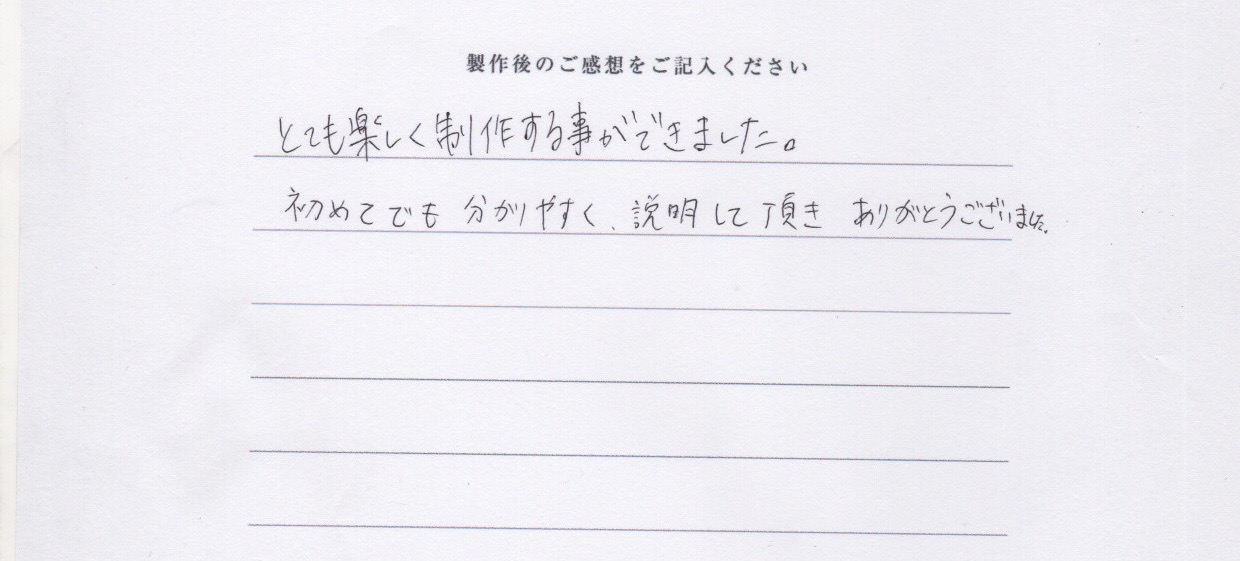 製作後のご感想をご記入ください
とても楽しく制作する事ができました。
初めてでも 分かりやすく、説明して頂き ありがとうございました。